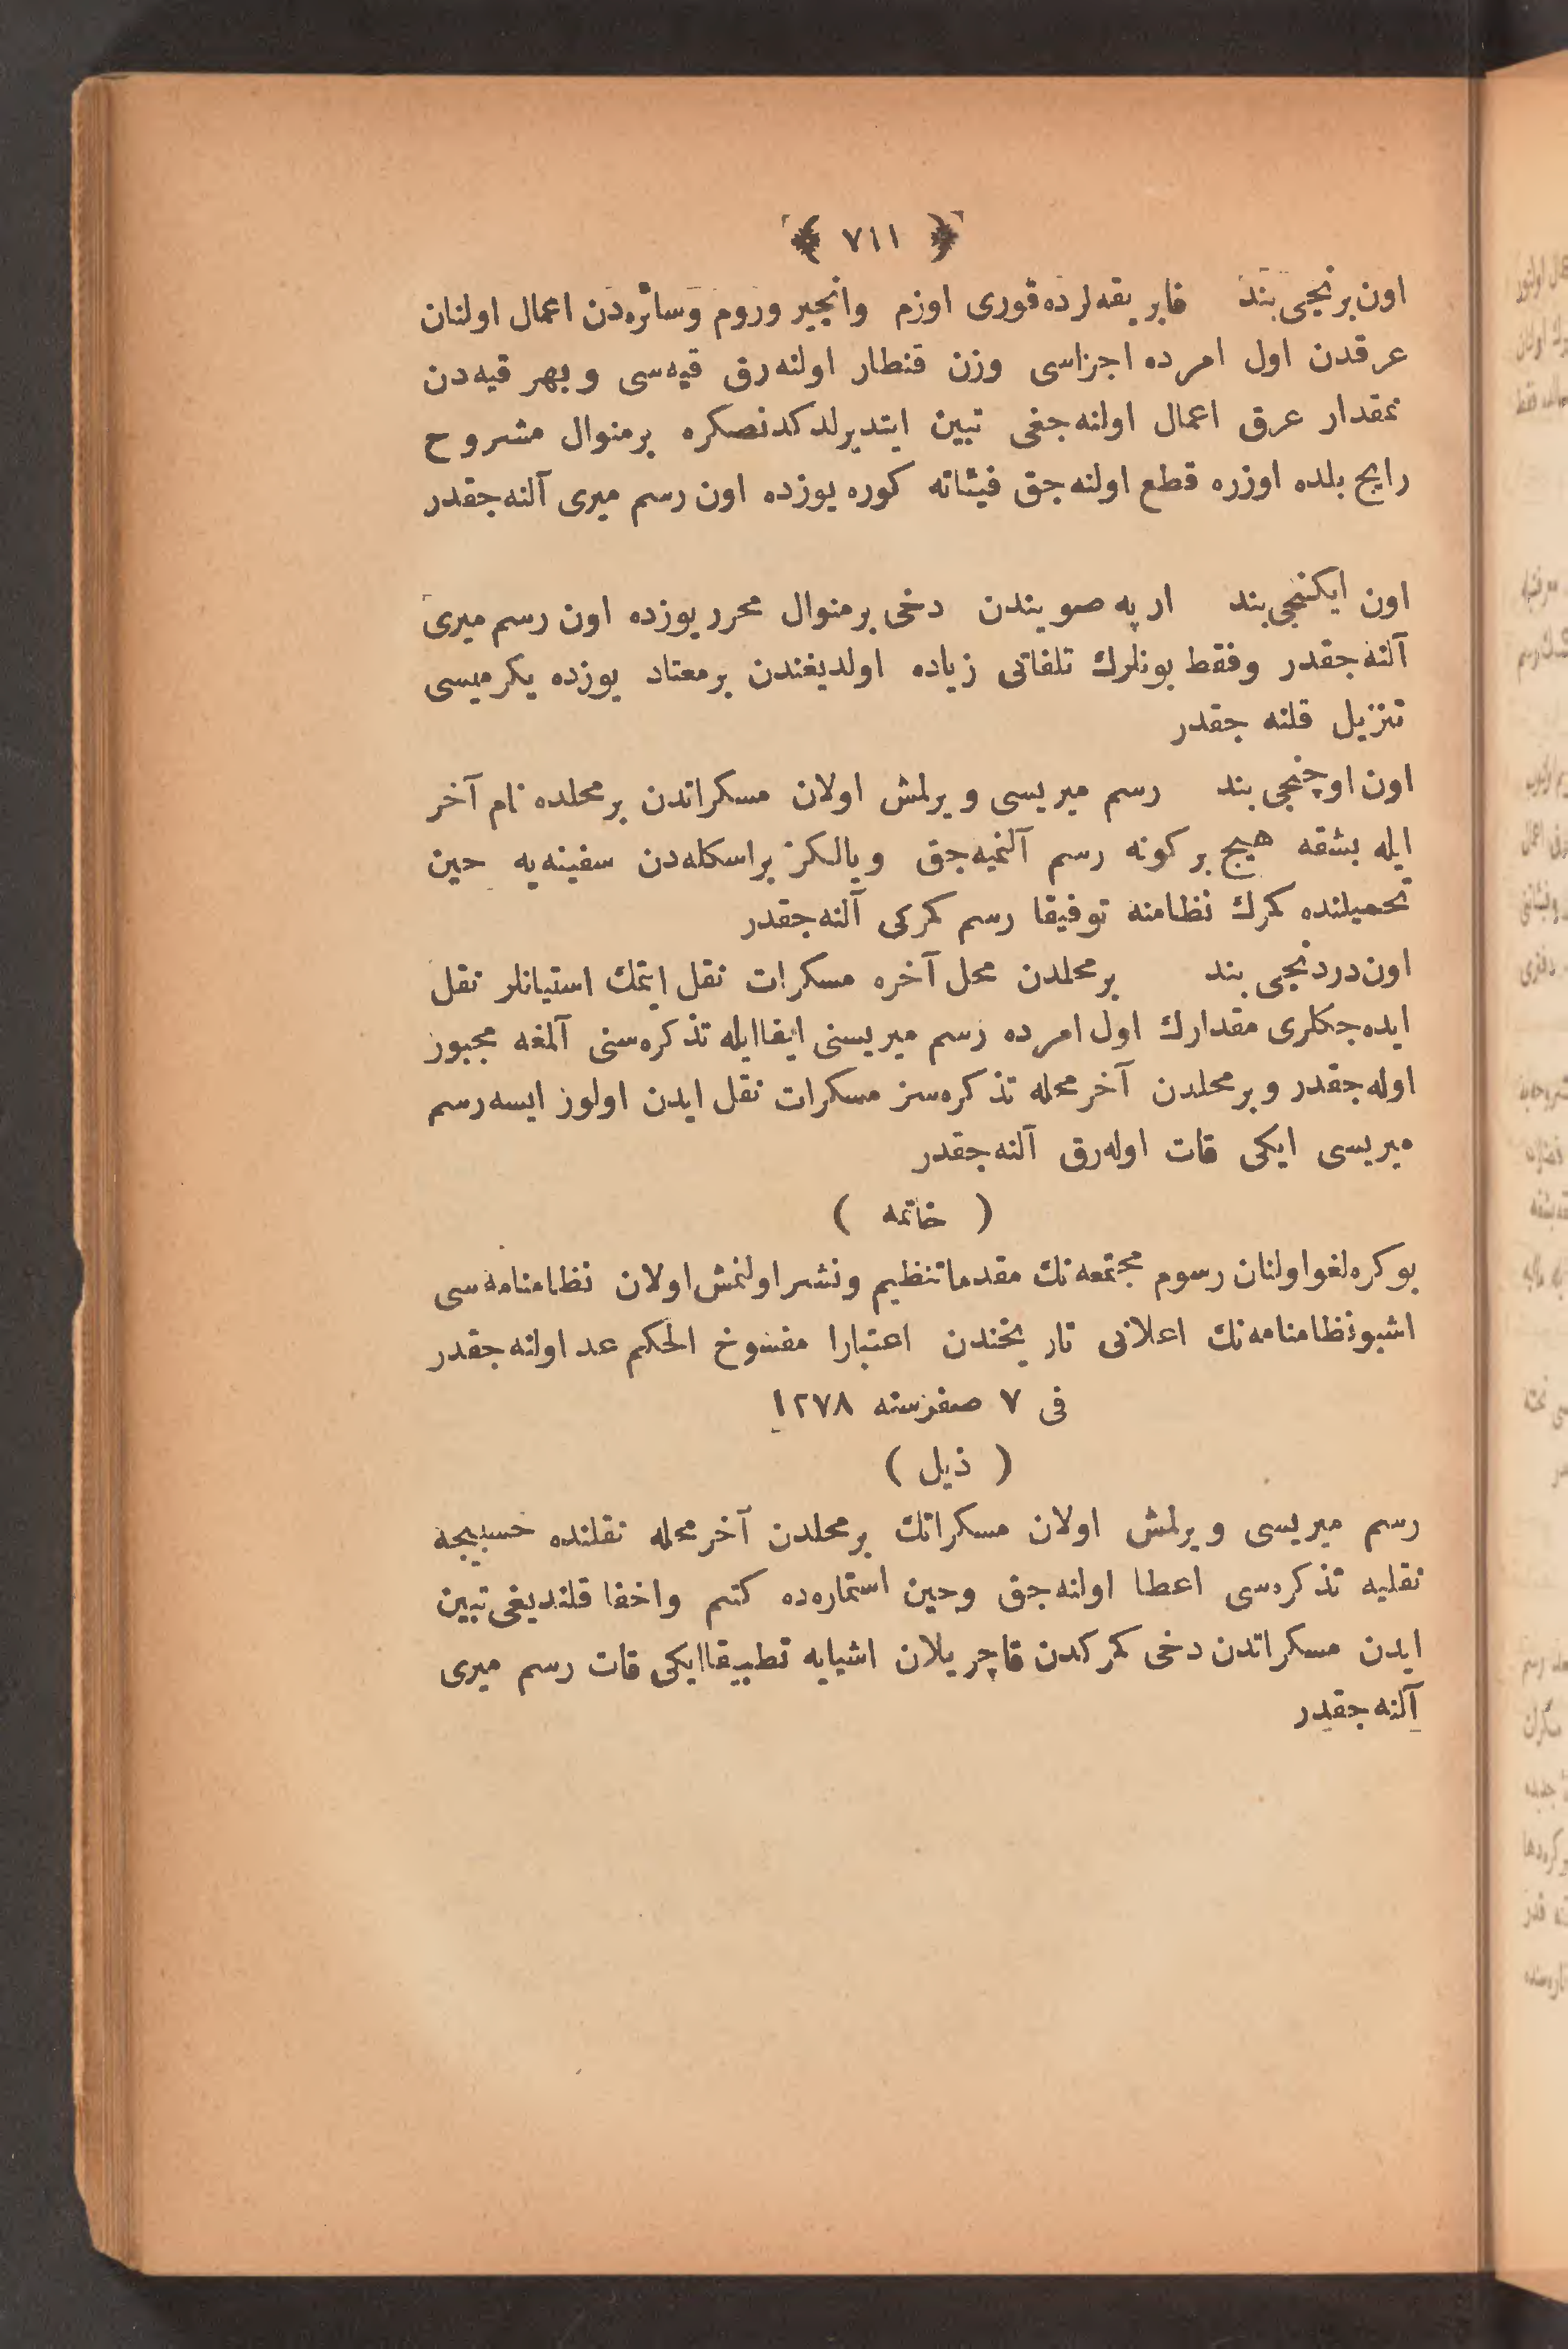 ﴿ ٧١١ ﴾
اون برنجی بند فابریقه‌لرده قوری اوزم وانجیر وروم وسائره‌دن اعمال اولنان
عرقدن اول امرده اجزاسی وزن قنطار اولنه‌رق قیه‌سی وبهر قیه‌دن
نمقدار عرق اعمال اولنه‌جغی تبین ایتدیرلدكدنصكره برمنوال مشروح
رایج بلده اوزره قطع اولنه‌جق فیئاته كوره یوزده اون رسم میری آلنه‌جقدر
اون ایكنجی بند ارپه صویندن دخی برمنوال محرر یوزده اون رسم میری
آلنه‌جقدر وفقط بونلرك تلفاتی زیاده اولدیغندن برمعتاد یوزده یكرمیسی
تنزیل قلنه جقدر
اون اوچنجی بند رسم میریسی ویرلمش اولان مسكراتدن برمحلده نام آخر
ایله بشقه هیچ بر كونه رسم آلنمیه‌جق ویالكز براسكله‌دن سفینه‌یه حین
تحمیلنده كمرك نظامنه توفیقا رسم كمركی آلنه‌جقدر
اون‌دردنجی بند برمحلدن محل آخره مسكرات نقل ایتمك استیانلر نقل
ایده‌جكلری مقدارك اول امرده رسم میریسنی ایفاایله تذكره‌سنی آلمغه مجبور
اوله‌جقدر وبرمحلدن آخر محله تذكره‌سز مسكرات نقل ایدن اولور ایسه رسم
میریسی ایكی قات اوله‌رق آلنه‌جقدر
( خاتمه )
بوكره لغواولنان رسوم مجتمعه‌نك مقدماتنظیم ونشراولنمش اولان نظامنامه‌سی
اشبونظامنامه‌نك اعلانی تاریخندن اعتبارا مفسوخ الحكم عد اولنه‌جقدر
فی ٧ صفرسنه ١٢٧٨
( ذیل )
رسم میریسی ویرلمش اولان مسكراتك برمحلدن آخر محله نقلنده حسبیجه
نقلیه تذكره‌سی اعطا اولنه‌جق وحین استماره‌ده كتم واخفا قلندیغی تبین
ایدن مسكراتدن دخی كمركدن قاچریلان اشیایه تطبیقاایكی قات رسم میری
آلنه‌جقدر